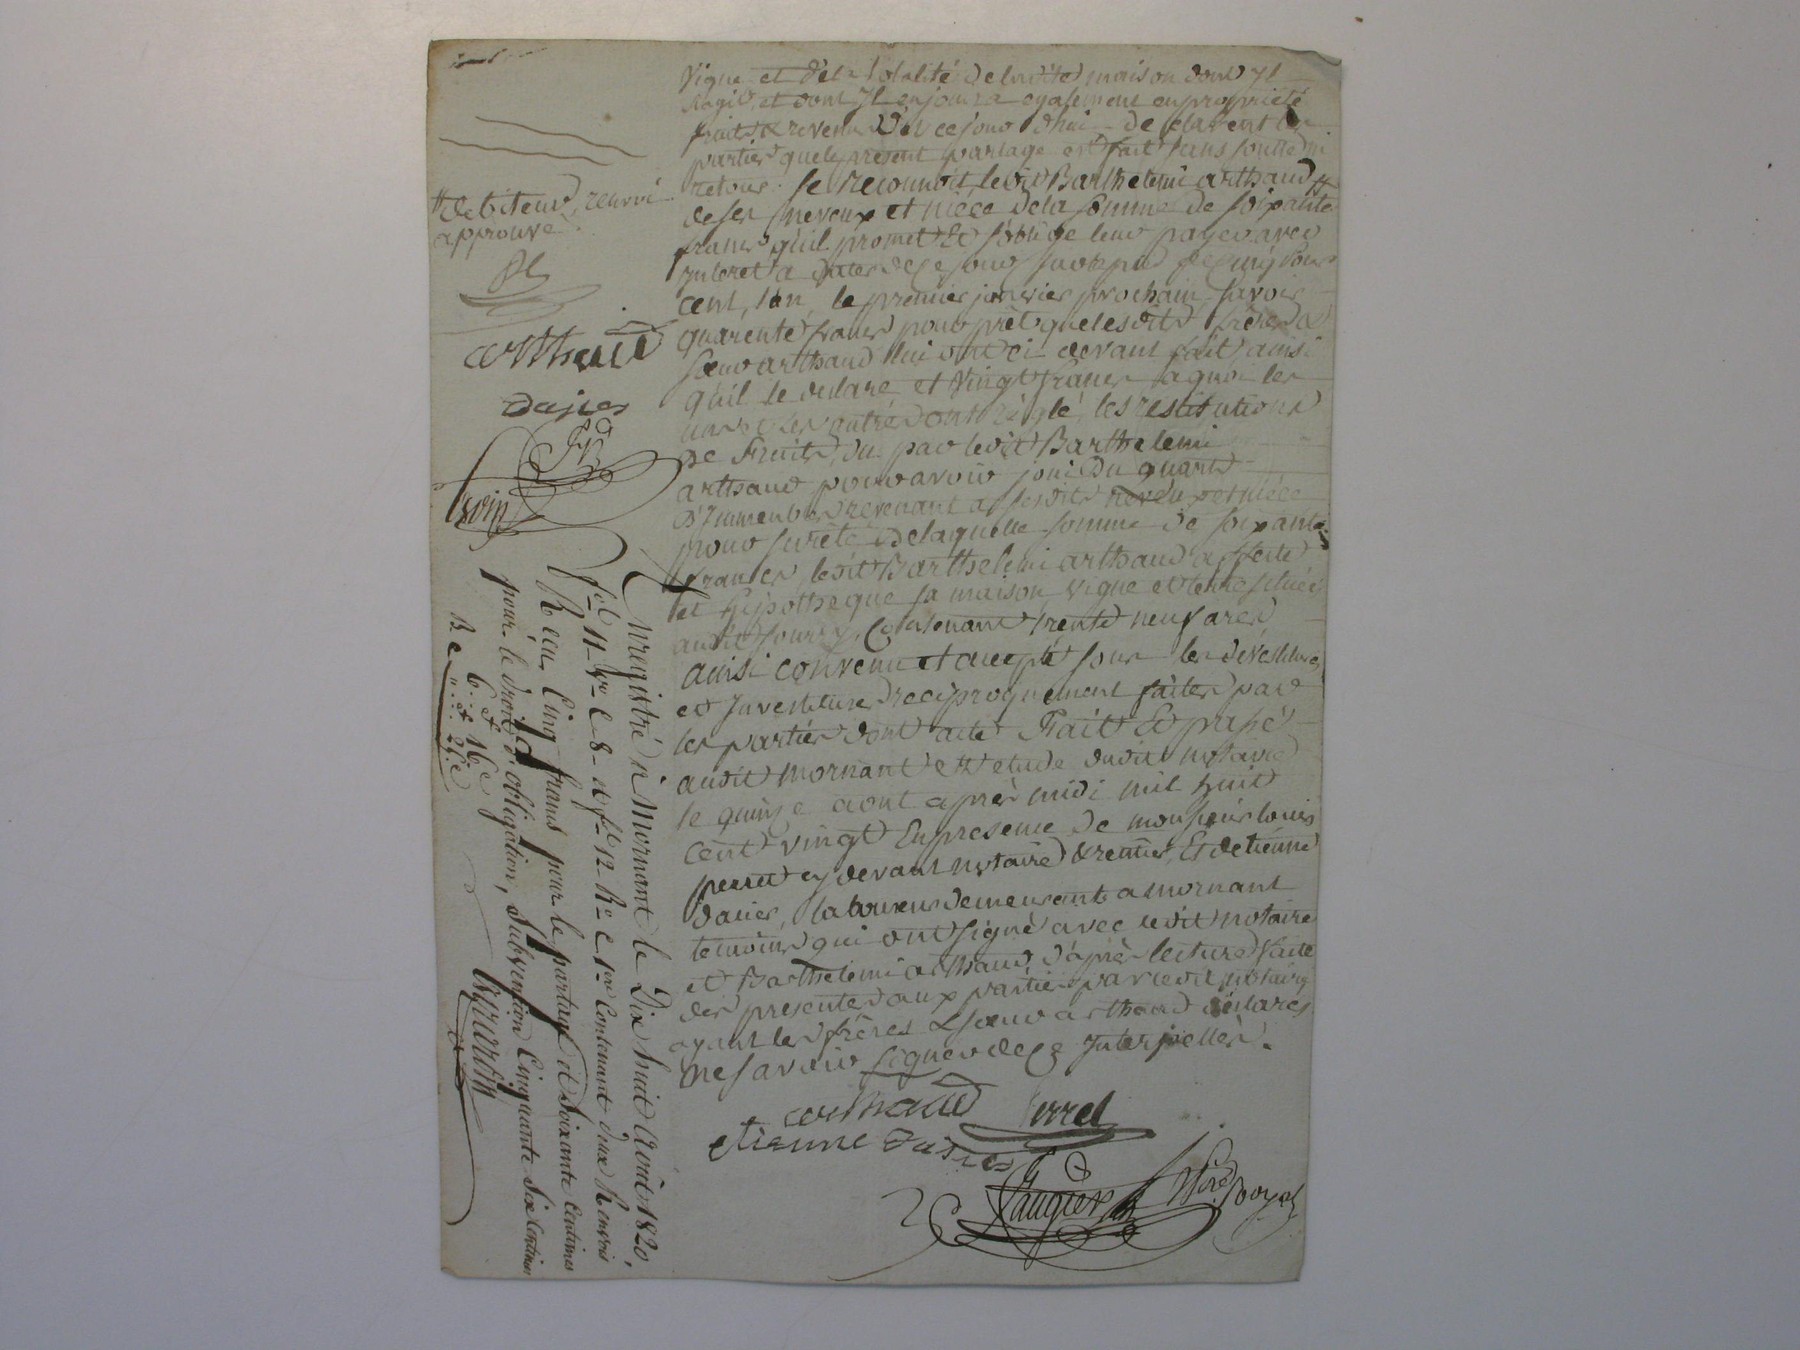 vigne et de la totalité de ladite maison dont yl
sagit, et dont yl enjouira egalement en propriété
fruits & revenu dès cejour dhui declarent les
parties que le présent partage est fait sans soulte ni
retour. Se reconnoit ledit Barthelemi arthaud #
de ses neveux et niéce dela somme de soixante
francs qu'il promet et s'oblige leur payer avec
interet a dater de ce jour sur le pied de cinq pour
cent, l'an, le premier janvier prochain, savoir
quarente francs pour prèt que lesdits frères &
sœur arthaud lui ont ci devant fait ainsi
qu'il le declare et vingt francs a quoi les
uns & les autres ont réglé les restitutions
de fruits du par ledit Barthelemi
arthaud pour avoir joui du quart
d'immeubles revenant a sesdits neveux et niéce
pour sureté de laquelle somme de soixante
francs, ledit Barthelemi arthaud affecte
et hipotheque sa maison vigne et terre située
audit Contenant trente neuf ares
ainsi convenu et accepté sous les devestitures
et investitures réciproquement faites par
les parties dont acte Fait et passé
audit mornant et etude dudit notaire
le quinze aout après midi mil huit
cent vingt En presence de monsieur louis
perret cy devant notaire & rentier, et de etienne
dasier, laboureur demeurants a mornant
temoins qui ont signé avec ledit notaire
et Barthelemi arthaud, d'après lecture faite
des presentes aux parties par ledit notaire
ayant les frères & sœur arthaud déclarés
ne savoir signer de ce interpellés.
arthaud perret
etienne dasier
Laugier Nre Royal
# debiteur, renvoi
approuvé
arthaud
dasier
Enregistré à Mornant le Dix huit Août 1820,
fol 11 Vo C 8 et fo 12 Ro C 1re Contenant deux Renvois
Recu Cinq francs pour le partage et Soixante Centimes
pour le droit d'obligation, Subvention Cinquante Six Centimes